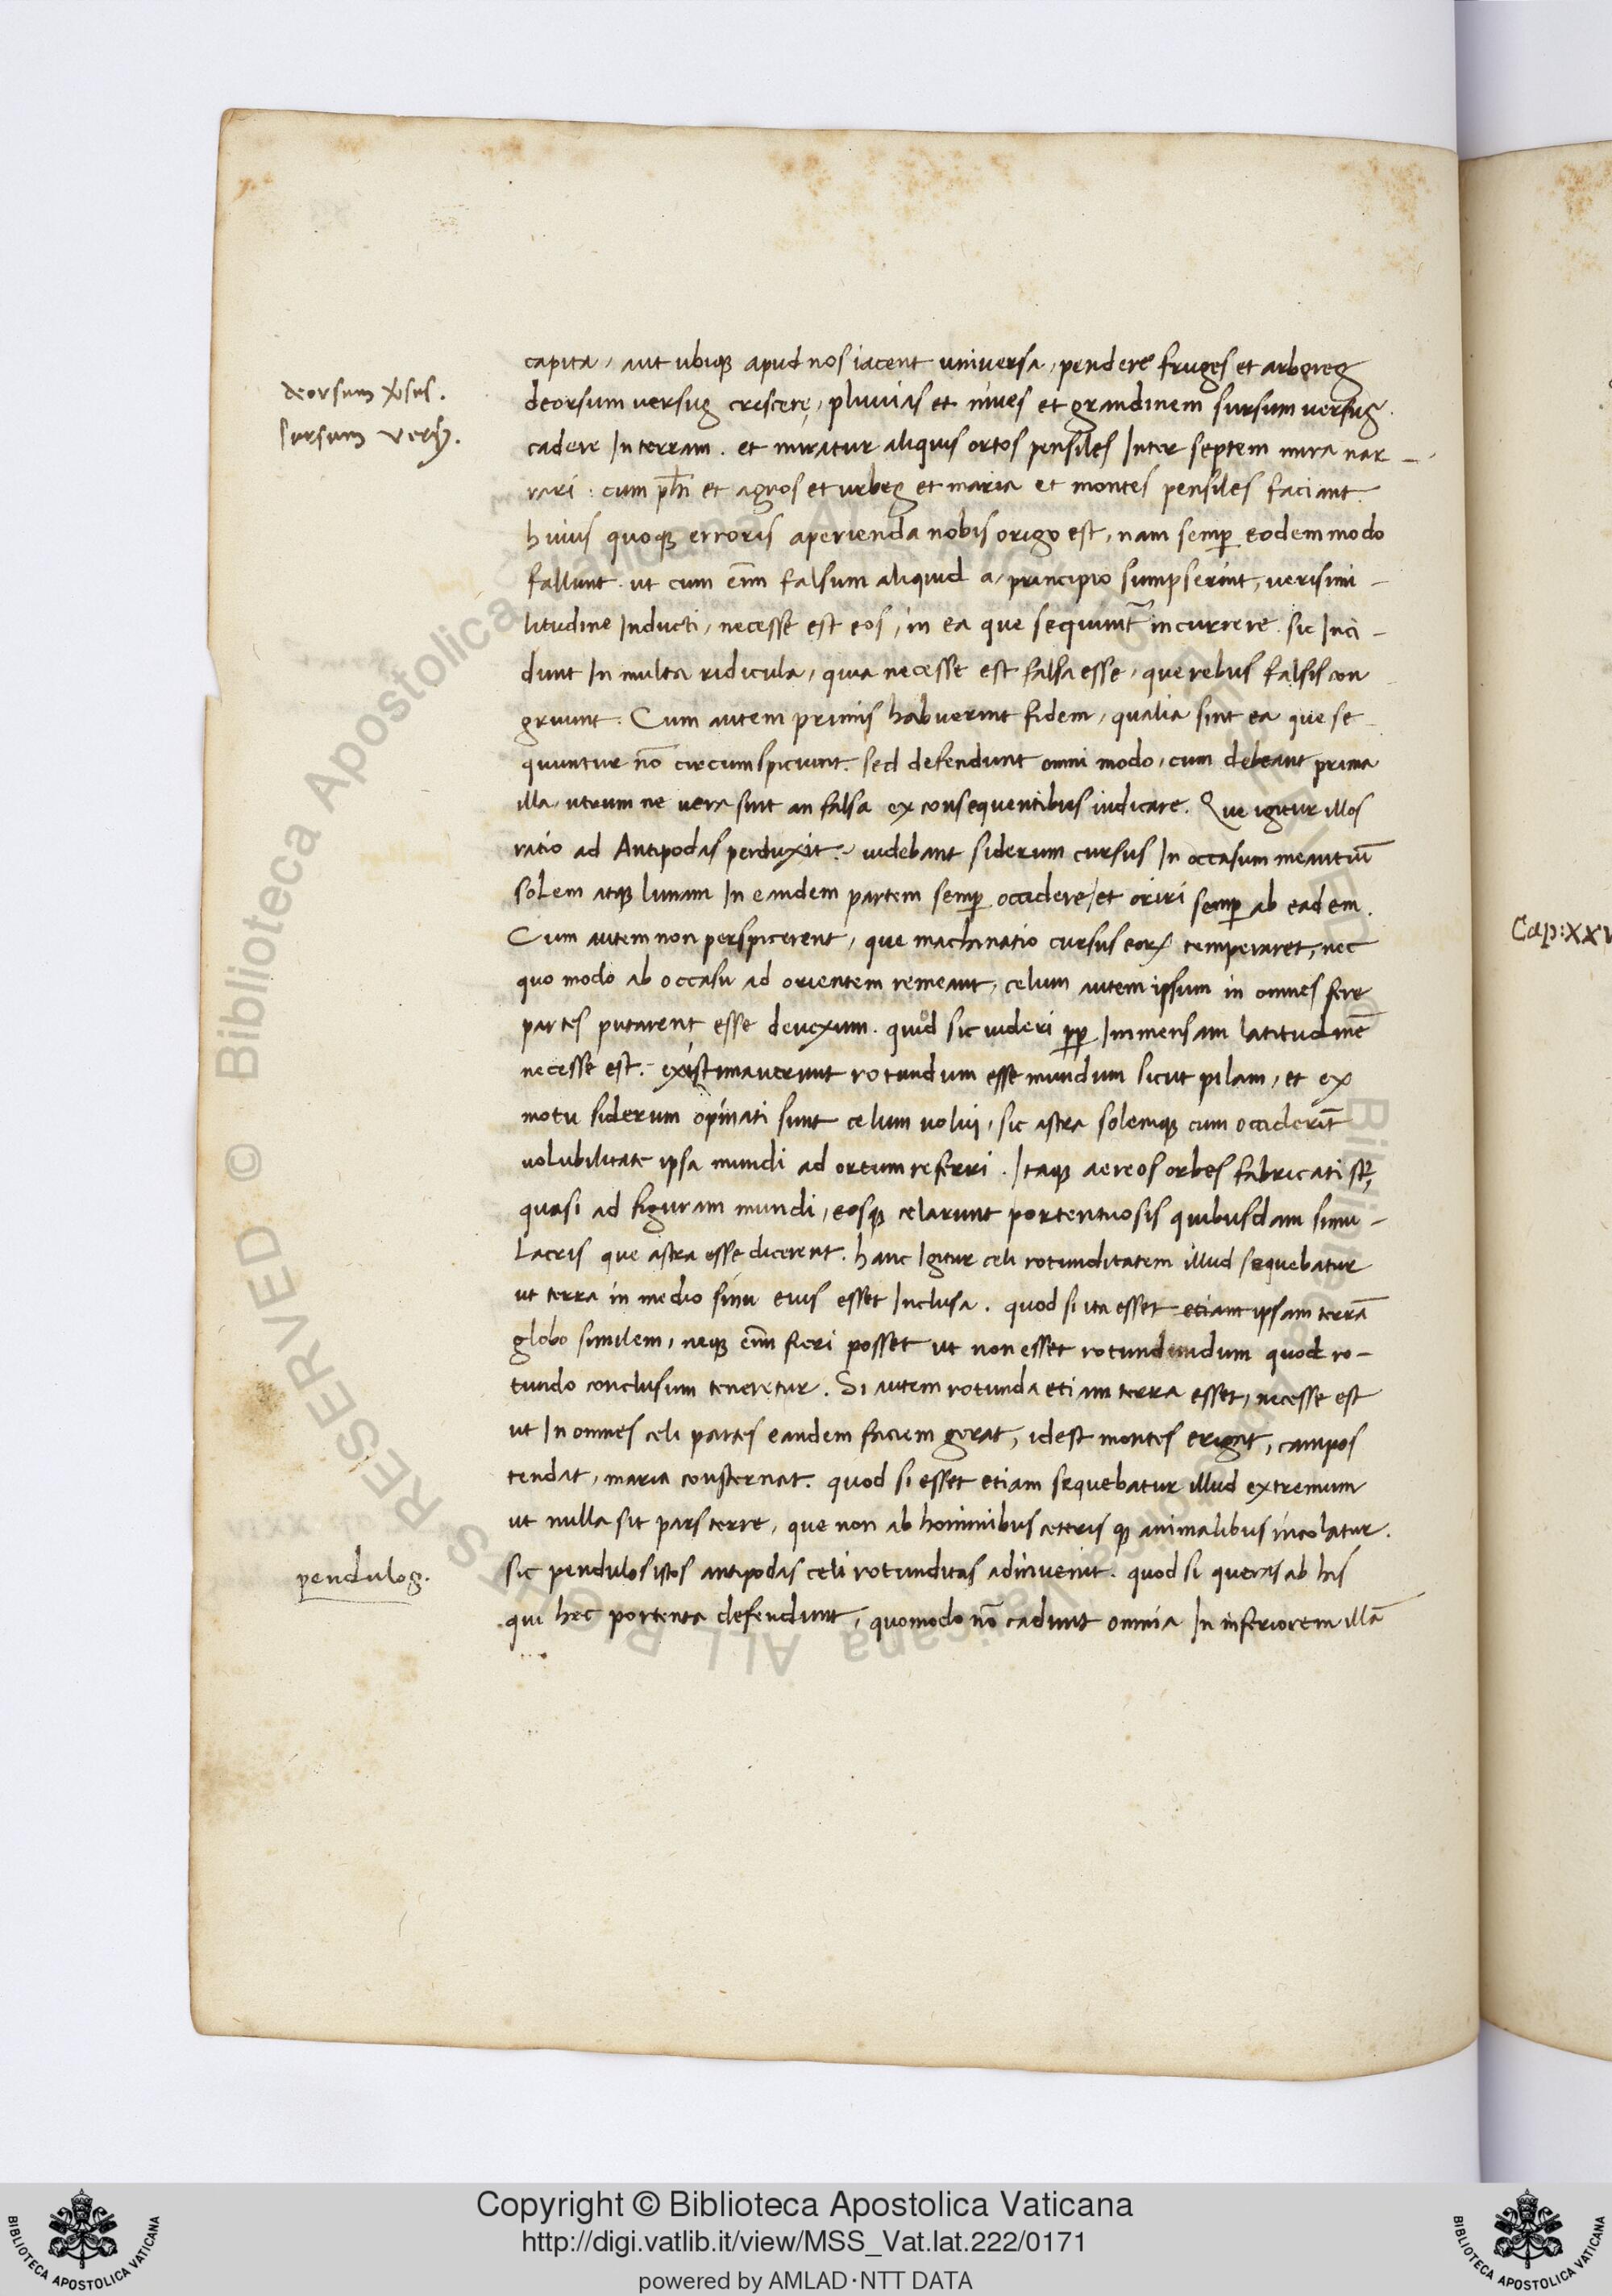 deorsum v̄sus.
sursum versꝫ.
capita, aut ubiqꝫ apud nos iacent universa, pendere fruges et arbores
deorsum versus crescere, pluvias et nives et grandinem sursum versus
cadere In terram. et miratur aliquis ortos pensiles Inter septem mira nar-
rari: cum ph̄i et agros et urbes et maria et montes pensiles faciant.
huius quoqꝫ erroris aperienda nobis origo est, nam semꝑ eodem modo
fallunt. ut cum em̄ falsum aliquid a, principio sumpserint, verisimi-
litudine Inducti, necesse est eos, in ea que sequunt᷑ incurrere. sic Inci-
dunt In multa ridicula, quia necesse est falsa esse, que rebus falsis con
gruunt. Cum autem primis habuerint fidem, qualia sint ea que se
quuntur nō circumspiciunt. sed defendunt omni modo, cum debeant prima
illa, utrum ne vera sint an falsa ex consequentibus iudicare. Que igitur illos
ratio ad Antipodas perduxit. uidebant siderum cursus In occasum meantiū
solem atqꝫ lunam In eandem partem semꝑ occidere, et oriri semꝑ ab eadem.
Cum autem non perspicerent, que machinatio cursus eoꝝ temperaret, nec
quo modo ab occasu ad orientem remeant, celum autem ipsum in omnes fere
partes putarent esse devexum. quod sic uideri ꝓꝑ Immensam latitudinē
necesse est. existimaverunt rotundum esse mundum sicut pilam, et ex
motu siderum opinati sunt celum volui, sic astra solemqꝫ cum occiderīt
uolubilitate ipsa mundi ad ortum referri. Itaqꝫ aereos orbes fabricati st̄,
quasi ad figuram mundi, eosqꝫ celarunt portentuosis quibusdam simu-
Lacris que astra esse dicerent. hanc Igitur celi rotunditatem illud sequebatur
ut terra in medio sinu eius esset Inclusa. quod si ita esset etiam ipsam terrā
globo similem, neqꝫ em̄ fieri posset ut non esset rotundundum quod ro-
tundo conclusum teneretur. Si autem rotunda etiam terra esset, necesse est
ut In omnes celi partes eandem faciem gerat, idest montes erigat, campos
tendat, maria consternat. quod si esset etiam sequebatur illud extremum
ut nulla sit pars terre, que non ab hominibus ceteris qꝫ animalibus incolatur.
pendulos.
sic pendulos istos antipodas celi rotunditas adinvenit. quod si queras ab his
qui hec portenta defendunt, quomodo nō cadunt omnia In inferiorem illā
Copyright © Biblioteca Apostolica Vaticana
http://digi.vatlib.it/view/MSS_Vat.lat.222/0171
powered by AMLAD·NTT DATA
BIBLIOTECA APOSTOLICA VATICANA
BIBLIOTECA APOSTOLICA VATICANA